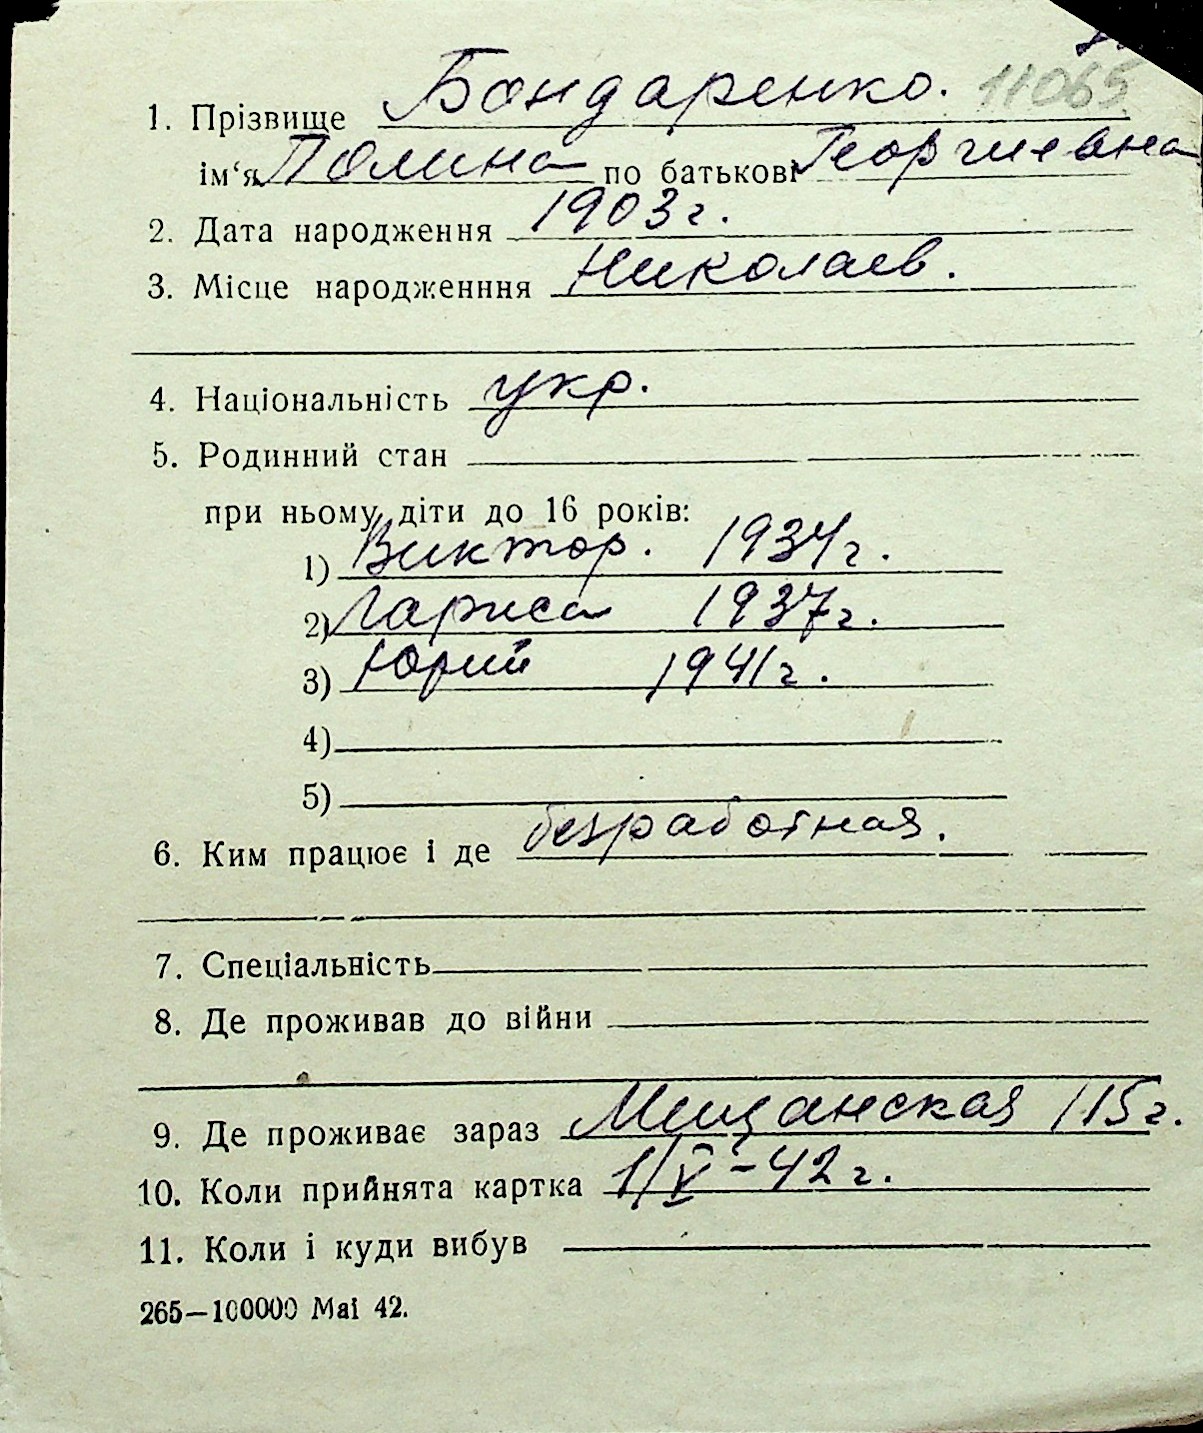 1. Прізвище Бондаренко. 11065
ім‘я Полина по батькові Георгиевна
2. Дата народження 1903 г.
3. Місце народженння Николаев.
4. Національність укр.
5. Родинний стан
при ньому діти до 16 років:
1) Виктор. 1934 г.
2) Лариса 1937 г.
3) Юрий 1941 г.
4)
5)
6. Ким працює і де безработная.
7. Спеціальність
8. Де проживав до війни
9. Де проживає зараз Мещанская 115 г.
10. Коли прийнята картка 1/V-42 г.
11. Коли і куди вибув
265—100000 Mai 42.